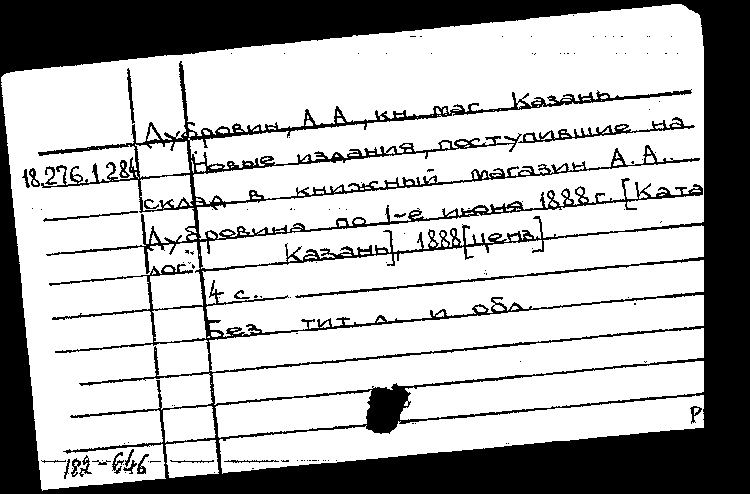 Дубровин, А.А., кн. маг. Казань.
18.276.1.284
Новые издания, поступившие на
склад в книжный магазин А.А.
Дубровина по 1-е июня 1888 г. [Ката
лог. Казань], 1888 [цена].
4 с.
Без тит. л. и обл.
182-646